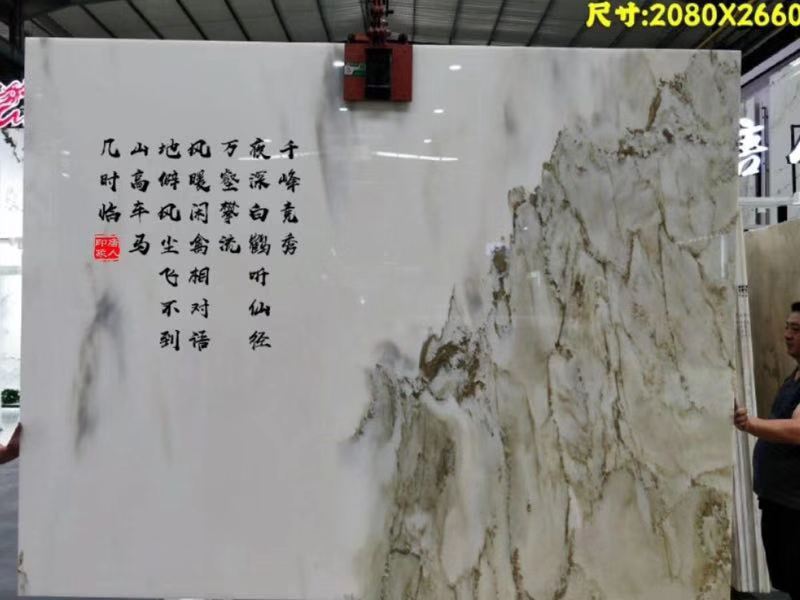 尺寸:2080X2660
千峰竞秀
夜深白鹤听仙经
万壑攀流
风暖闲禽相对语
地僻风尘飞不到
山高车马
几时临
唐人